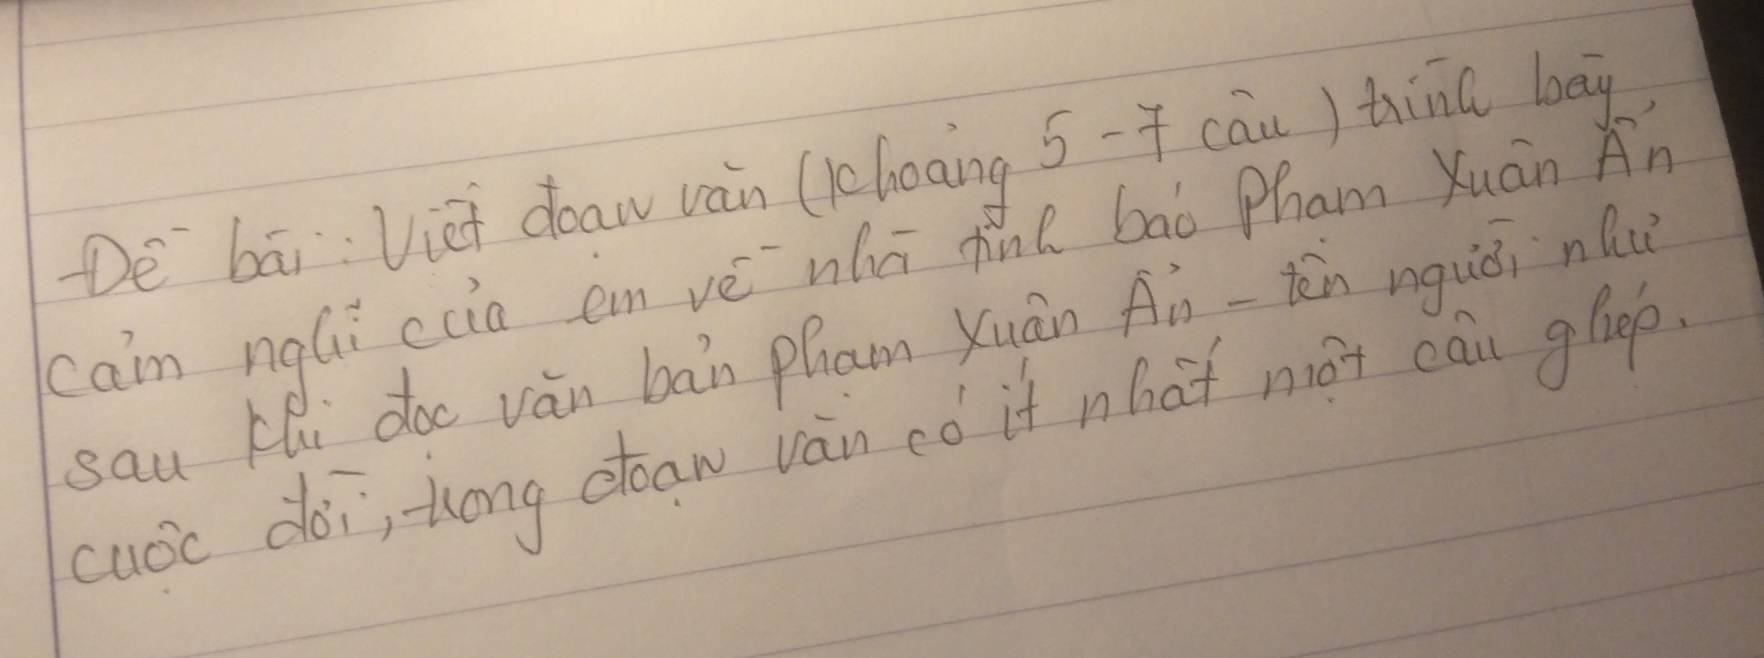 Đề bài: Viết đoạn văn (khoảng 5-7 câu) trình bày
cảm nghĩ của em về nhà tình báo Phạm Xuân Ẩn
sau khi đọc văn bản Phạm Xuân Ẩn - tên người như
cuộc đời, trong đoạn văn có ít nhất một câu ghép.